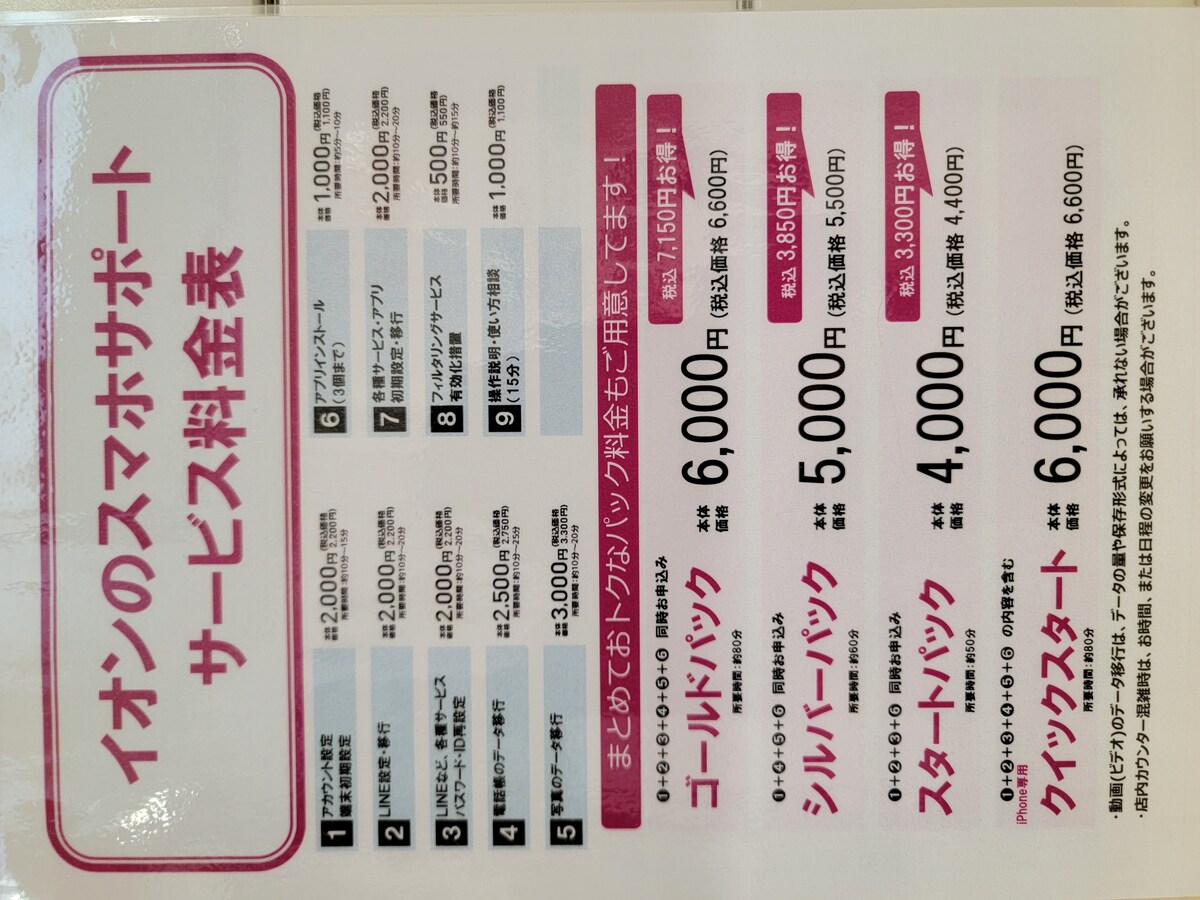 イオンのスマホサポート
サービス料金表
1 アカウント設定
端末初期設定
本体価格 2,000円(税込価格 2,200円)
所要時間:約10分〜15分
2 LINE設定・移行
本体価格 2,000円(税込価格 2,200円)
所要時間:約10分〜20分
3 LINEなど、各種サービス
パスワード・ID再設定
本体価格 2,000円(税込価格 2,200円)
所要時間:約10分〜20分
4 電話帳のデータ移行
本体価格 2,500円(税込価格 2,750円)
所要時間:約10分〜25分
5 写真のデータ移行
本体価格 3,000円(税込価格 3,300円)
所要時間:約10分〜20分
6 アプリインストール
(3個まで)
本体価格 1,000円(税込価格 1,100円)
所要時間:約5分〜10分
7 各種サービス・アプリ
初期設定・移行
本体価格 2,000円(税込価格 2,200円)
所要時間:約10分〜20分
8 フィルタリングサービス
有効化措置
本体価格 500円(税込価格 550円)
所要時間:約10分〜約15分
9 操作説明・使い方相談
(15分)
本体価格 1,000円(税込価格 1,100円)
まとめておトクなパック料金もご用意してます!
❶+❷+❸+❹+❺+❻ 同時お申込み
税込 7,150円お得!
ゴールドパック 本体価格 6,000円(税込価格 6,600円)
所要時間:約80分
❶+❹+❺+❻ 同時お申込み
税込 3,850円お得!
シルバーパック 本体価格 5,000円(税込価格 5,500円)
所要時間:約60分
❶+❷+❸+❻ 同時お申込み
税込 3,300円お得!
スタートパック 本体価格 4,000円(税込価格 4,400円)
所要時間:約50分
❶+❷+❸+❹+❺+❻ の内容を含む
iPhone専用
クイックスタート 本体価格 6,000円(税込価格 6,600円)
所要時間:約80分
・動画(ビデオ)のデータ移行は、データの量や保存形式によっては、承れない場合がございます。
・店内カウンター混雑時は、お時間、または日程の変更をお願いする場合がございます。